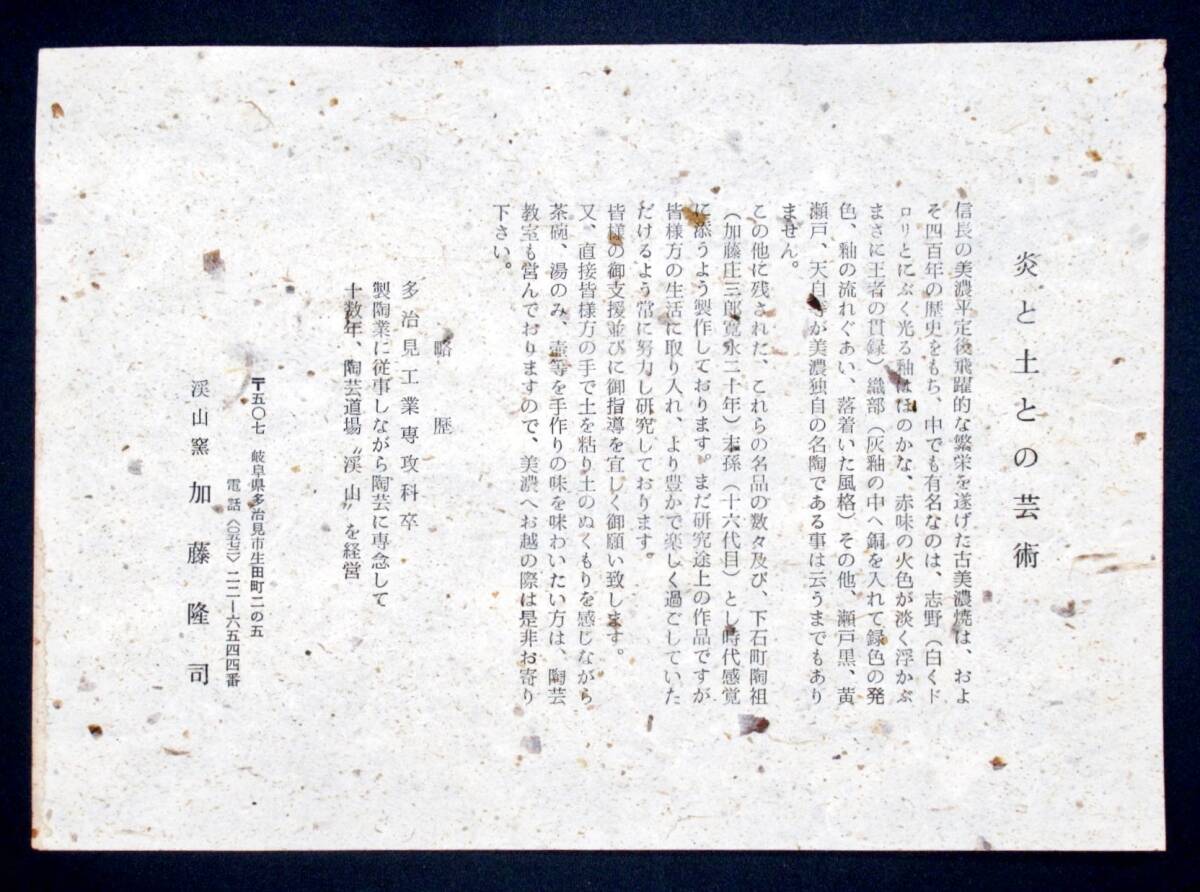 炎と土との芸術
信長の美濃平定後飛躍的な繁栄を遂げた古美濃焼は、およ
そ四百年の歴史をもち、中でも有名なのは、志野（白くド
ロリとにぶく光る釉はほのかな、赤味の火色が淡く浮かぶ
まさに王者の貫録）織部（灰釉の中へ銅を入れて緑色の発
色、釉の流れぐあい、落着いた風格）その他、瀬戸黒、黄
瀬戸、天目等が美濃独自の名陶である事は云うまでもあり
ません。
この他に残された、これらの名品の数々及び、下石町陶祖
（加藤庄三郎寛永二十年）末孫（十六代目）とし時代感覚
に添うよう製作しております。まだ研究途上の作品ですが
皆様方の生活に取り入れ、より豊かで楽しく過ごしていた
だけるよう常に努力し研究しております。
皆様の御支援並びに御指導を宜しく御願い致します。
又、直接皆様方の手で土を粘り土のぬくもりを感じながら
茶碗、湯のみ、壷等を手作りの味を味わいたい方は、陶芸
教室も営んでおりますので、美濃へお越の際は是非お寄り
下さい。
略歴
多治見工業専攻科卒
製陶業に従事しながら陶芸に専念して
十数年、陶芸道場〝渓山〟を経営
〒五〇七 岐阜県多治見市生田町二の五
電話〈〇五七二〉二二―六五四四番
渓山窯 加藤隆司